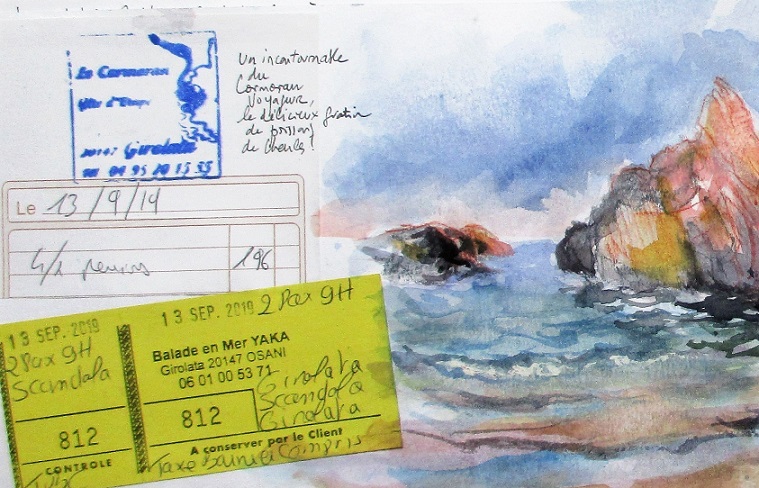 Le Cormoran
Gîte d'Etape
20147 Girolata
Tél 04 95 20 15 55
Un incontournable
du
Cormoran
Voyageur,
le délicieux gratin
de poisson
de Charles!
Le 13/9/14
196
13 SEP. 2019
2 Pax 9H
Scandola
812
CONTROLE
13 SEP. 2019 2 Pax 9H
Balade en Mer YAKA
Girolata 20147 OSANI
06 01 00 53 71
Girolata
Scandola
Girolata
812
A conserver par le Client
Taxe Barnier Compris